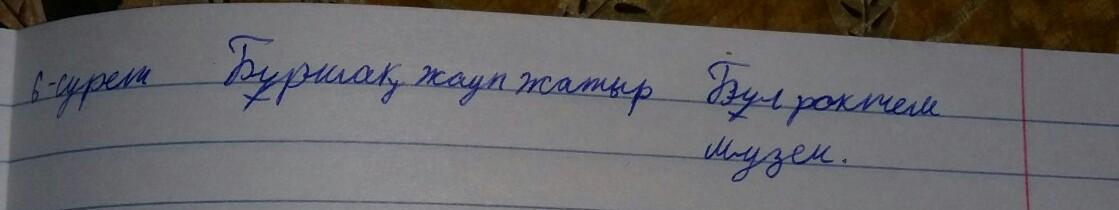 6-сурет Бұршақ жауп жатыр Бұл рактем
музей.